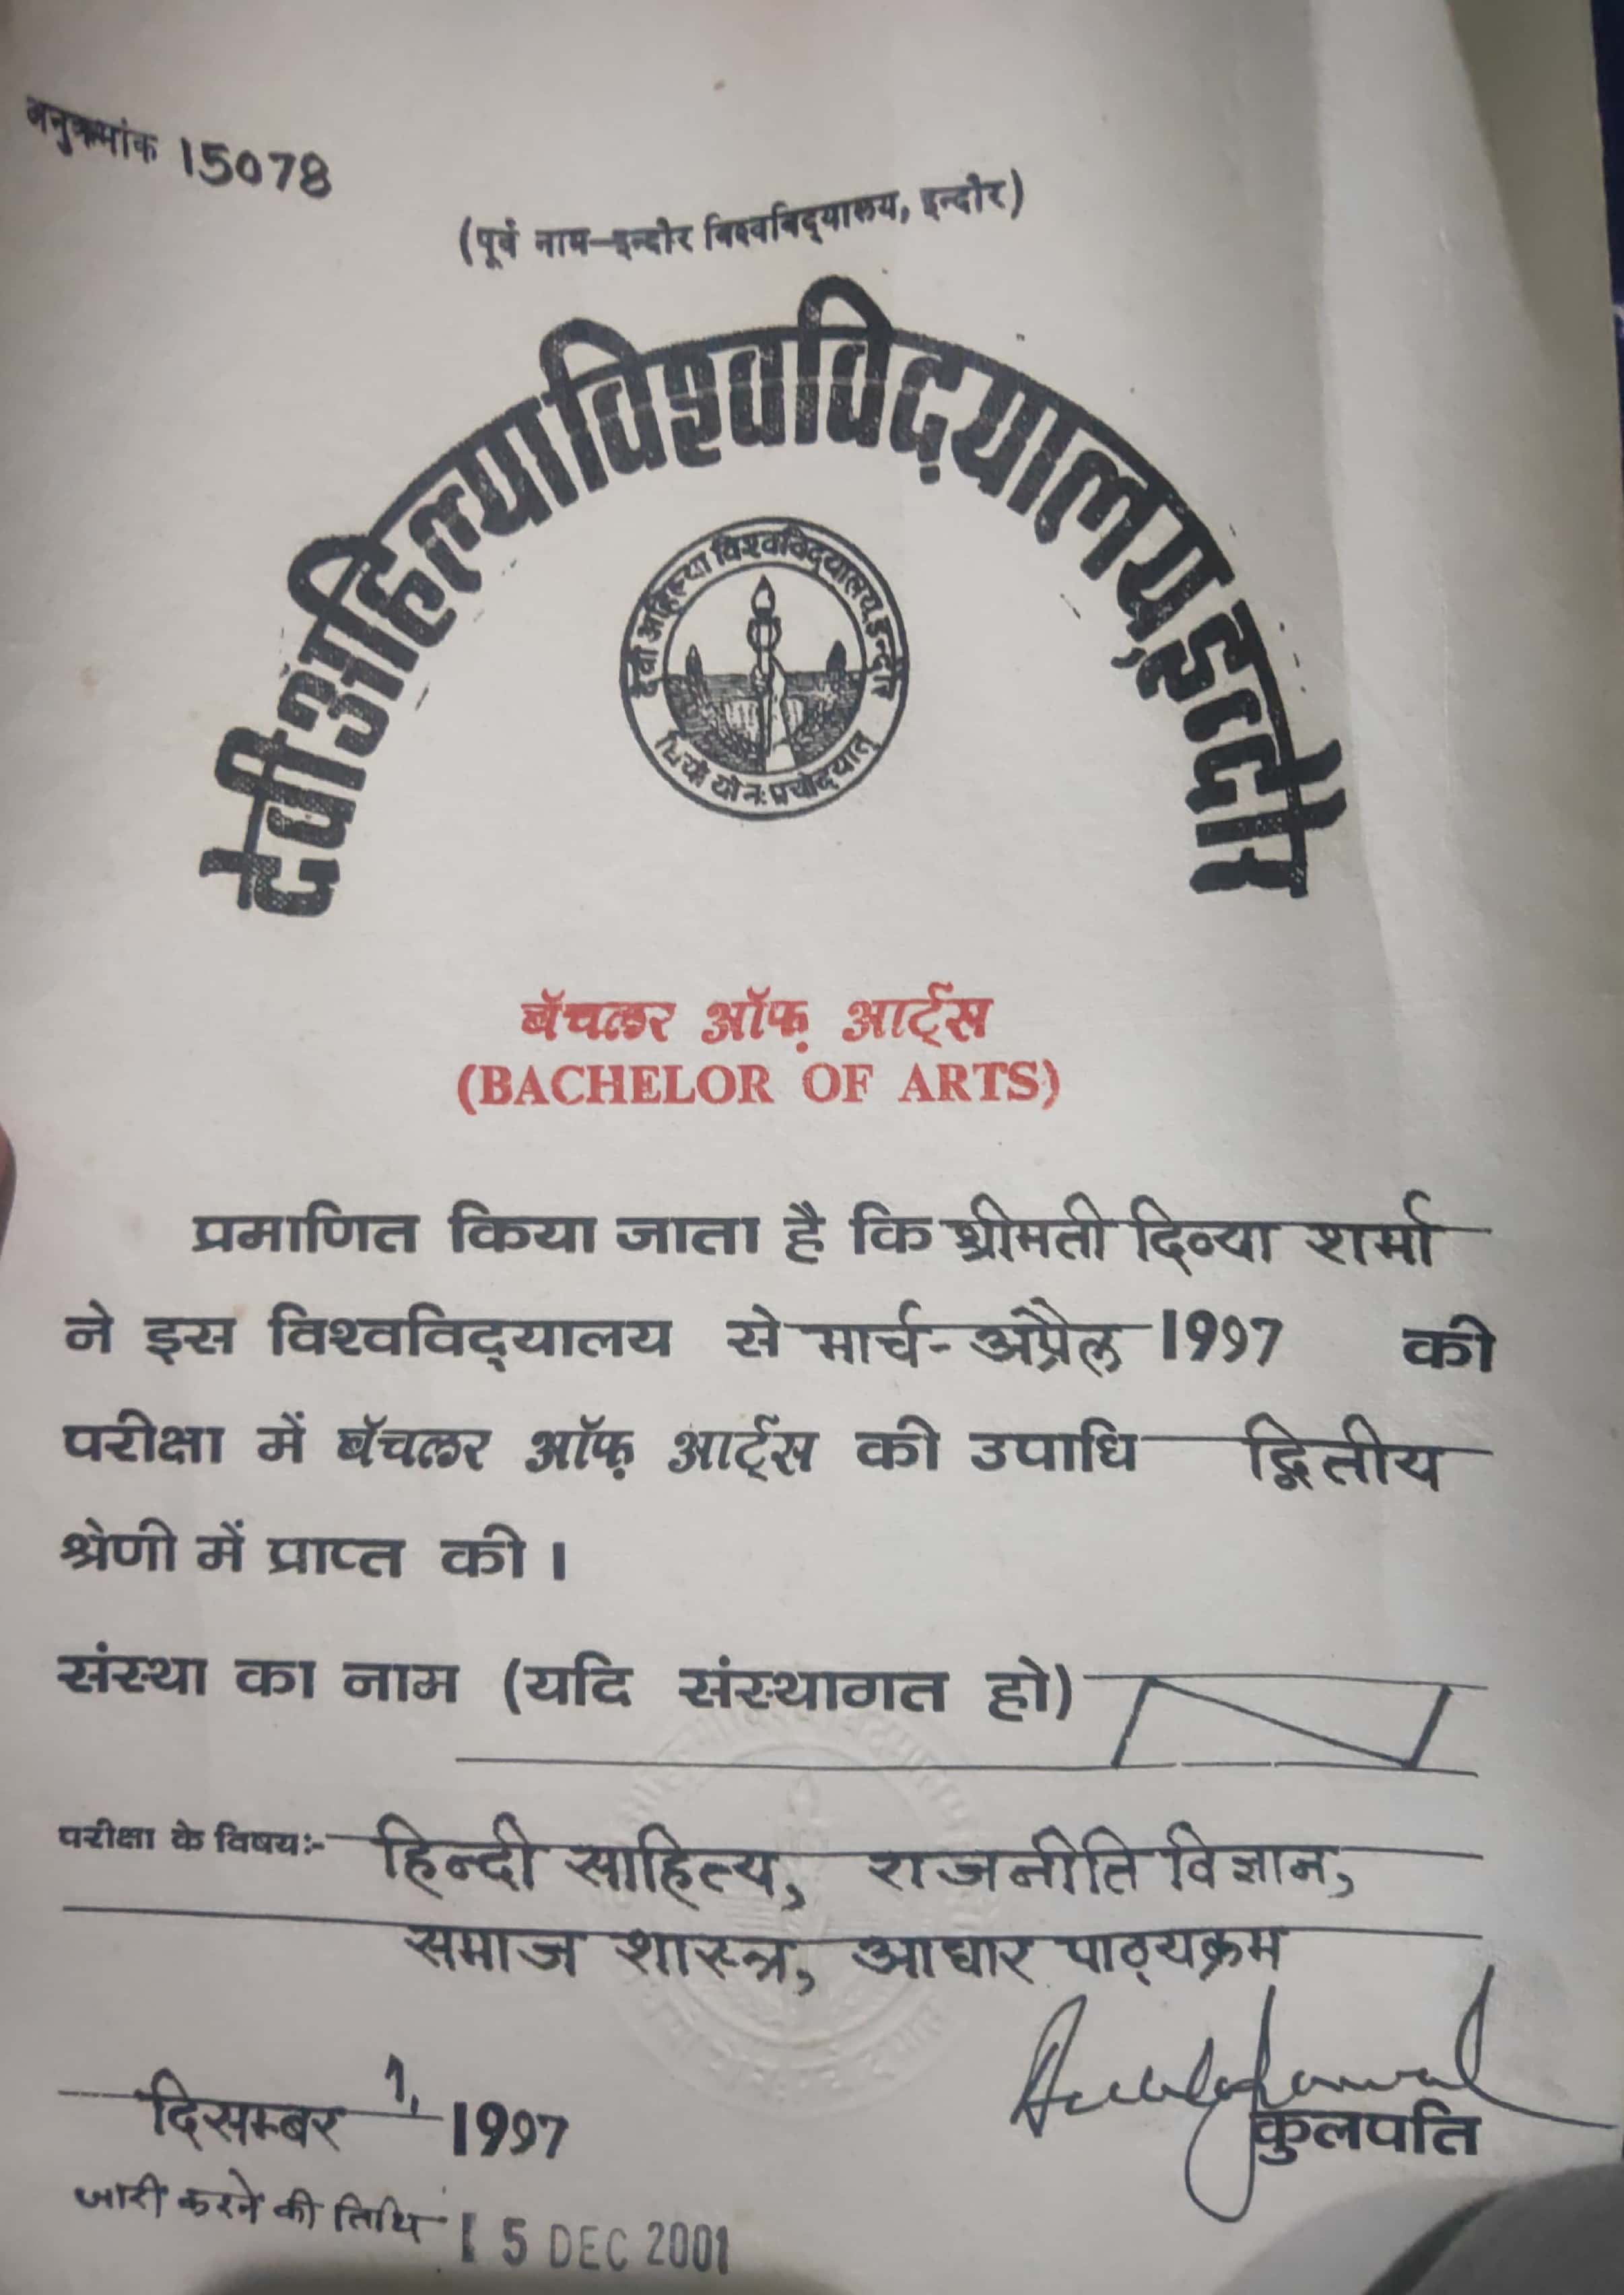 अनुक्रमांक 15078
(पूर्व नाम-इन्दौर विश्वविद्यालय, इन्दौर)
देवी अहिल्या विश्वविद्यालय, इन्दौर
देवी अहिल्या विश्वविद्यालय, इन्दौर
धियो यो नः प्रचोदयात्
बॅचलर ऑफ़ आर्ट्स
(BACHELOR OF ARTS)
प्रमाणित किया जाता है कि श्रीमती दिव्या शर्मा
ने इस विश्वविद्यालय से मार्च-अप्रैल 1997 की
परीक्षा में बॅचलर ऑफ़ आर्ट्स की उपाधि द्वितीय
श्रेणी में प्राप्त की।
संस्था का नाम (यदि संस्थागत हो)
परीक्षा के विषय:- हिन्दी साहित्य, राजनीति विज्ञान,
समाज शास्त्र, आधार पाठ्यक्रम
दिसम्बर 1, 1997
कुलपति
जारी करने की तिथि 15 DEC 2001